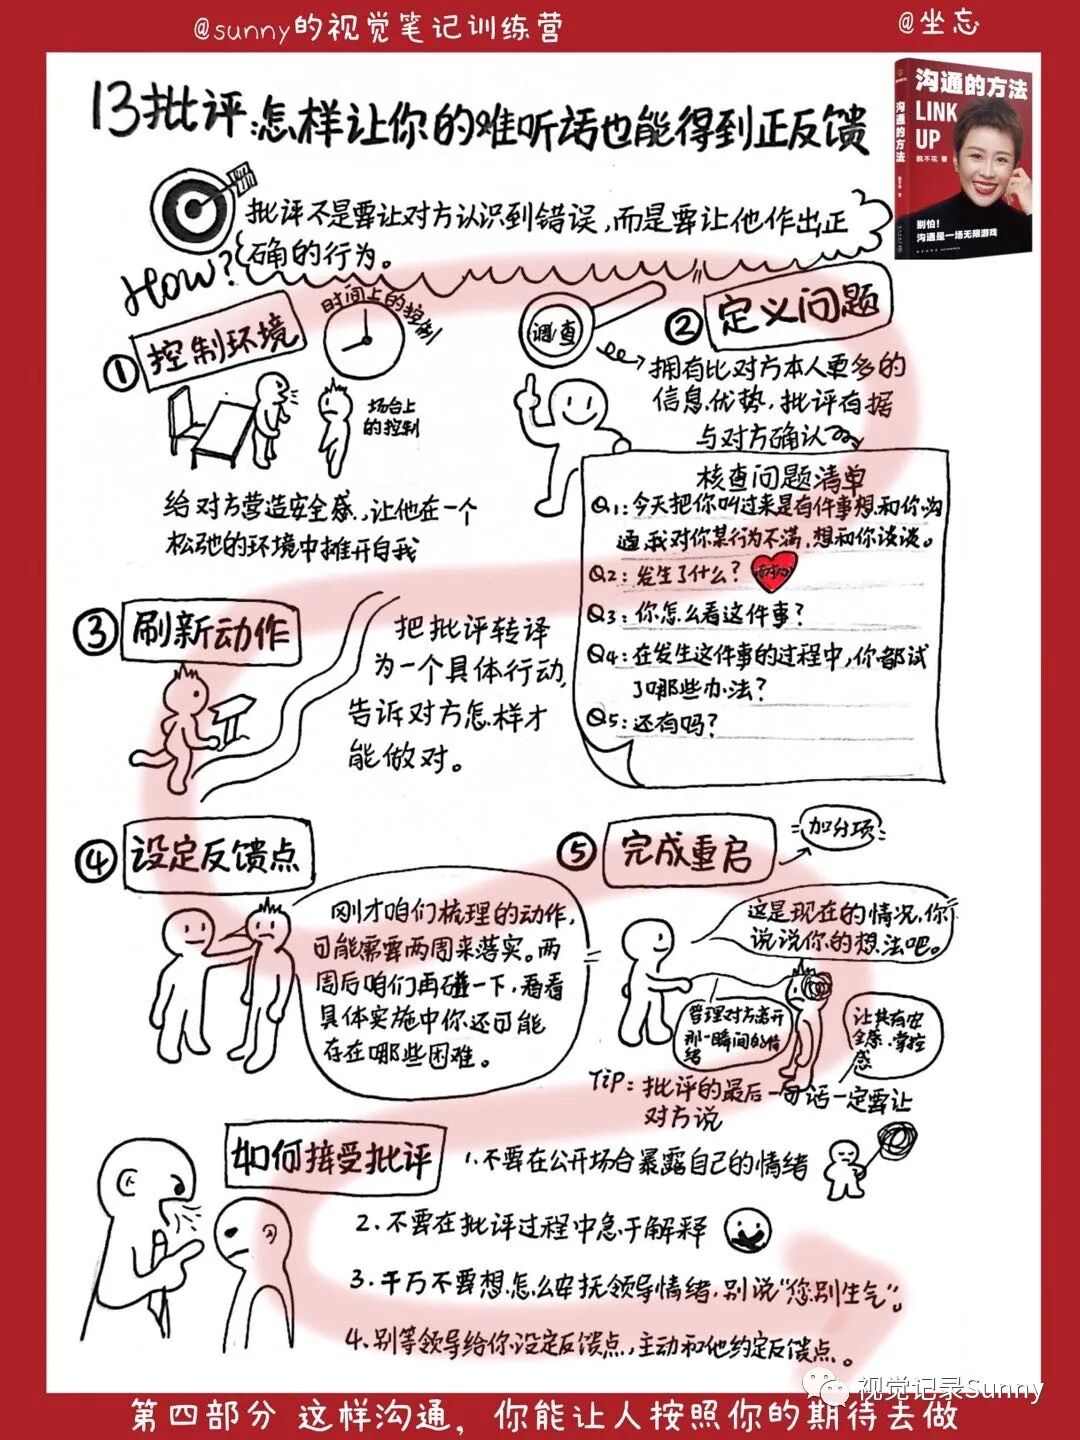 @sunny的视觉笔记训练营
@坐忘
13批评:怎样让你的难听话也能得到正反馈
沟通的方法
LINK
UP
脱不花 著
别怕!
沟通是一场无限游戏
沟通的方法
批评不是要让对方认识到错误,而是要让他作出正
确的行为。
How?
① 控制环境
时间上的控制
场合上
的控制
给对方营造安全感,让他在一个
松弛的环境中摊开自我
调查
② 定义问题
拥有比对方本人更多的
信息优势,批评有据
与对方确认
核查问题清单
Q1:今天把你叫过来是有件事想和你沟
通,我对你某行为不满,想和你谈谈。
Q2:发生了什么?
Q3:你怎么看这件事?
Q4:在发生这件事的过程中,你都试
了哪些办法?
Q5:还有吗?
③ 刷新动作
把批评转译
为一个具体行动,
告诉对方怎样才
能做对。
④ 设定反馈点
刚才咱们梳理的动作,
可能需要两周来落实。两
周后咱们再碰一下,看看
具体实施中你还可能
存在哪些困难。
⑤ 完成重启
加分项
这是现在的情况,你
说说你的想法吧。
管理对方离开
那一瞬间的情
绪
让其有安
全感、掌控
感
Tip:批评的最后一句话一定要让
对方说
如何接受批评
1.不要在公开场合暴露自己的情绪
2.不要在批评过程中急于解释
3.千万不要想怎么安抚领导情绪,别说“您别生气”。
4.别等领导给你设定反馈点,主动和他约定反馈点。
视觉记录Sunny
第四部分 这样沟通,你能让人按照你的期待去做